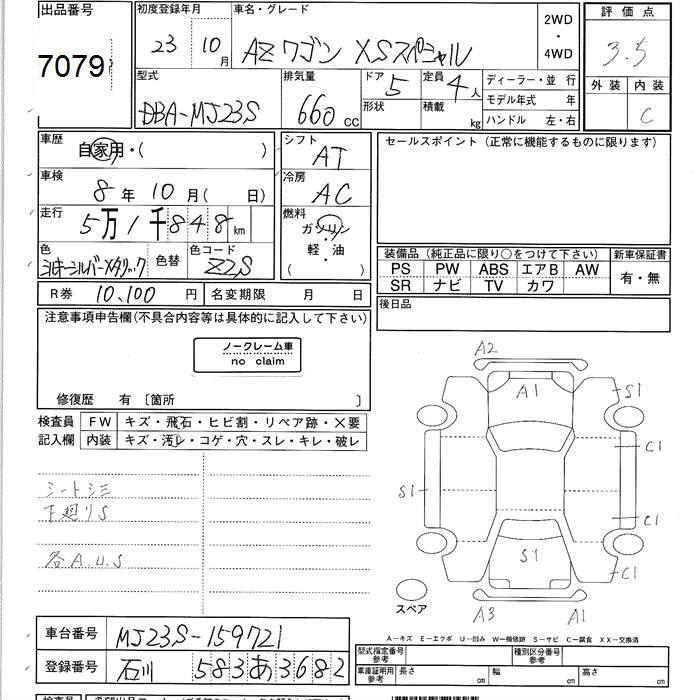 出品番号 初度登録年月 車名・グレード 2WD・4WD 評価点
7079 23年 10月 AZワゴン XSスペシャル 3.5
型式 排気量 ドア 5 定員 4人 ディーラー・並行 外装 内装
DBA-MJ23S 660cc 形状 積載 kg モデル年式 年 C
ハンドル 左・右
車歴 自家用・( ) シフト AT セールスポイント (正常に機能するものに限ります)
車検 8年10月( 日) 冷房 AC
走行 5万1千848km 燃料 ガソリン・軽・油 ( )
色 シルキーシルバーメタリック 色替 色コード Z2S
装備品 (純正品に限り○をつけて下さい) 新車保証書
PS PW ABS エアB AW 有・無
SR ナビ TV カワ
R券 10,100円 名変期限 月 日 後日品
注意事項申告欄(不具合内容等は具体的に記入して下さい)
ノークレーム車
no claim
修復歴 有 〔箇所 〕
検査員 FW キズ・飛石・ヒビ割・リペア跡・×要
記入欄 内装 キズ・汚レ・コゲ・穴・スレ・キレ・破レ
シートシミ
下廻りS
各A.U.S
A2
A1 S1
C1
S1 C1
S1 C1
スペア A3 A1
A−キズ E−エクボ U−凹み W−補修跡 S−サビ C−腐食 XX−交換済
車台番号 MJ23S-159721
登録番号 石川 583あ3682
型式指定番号 参考 種別区分番号 参考
車庫証明用 参考 長さ cm 幅 cm 高さ cm